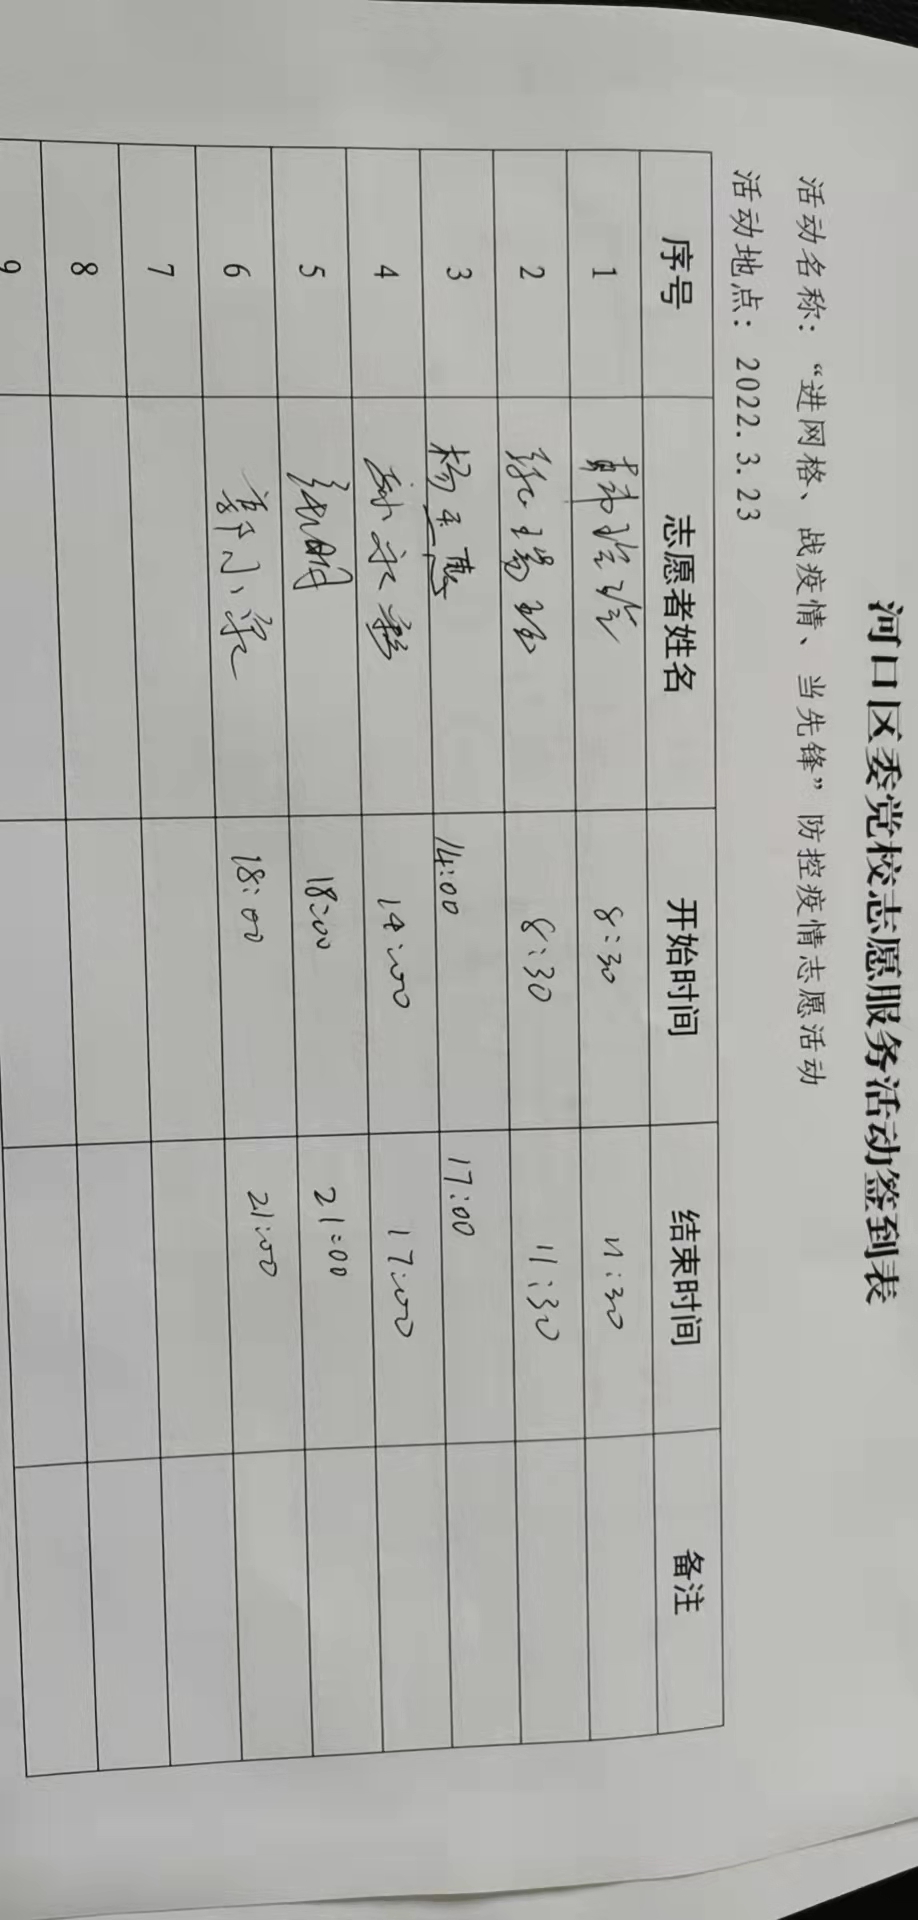 河口区委党校志愿服务活动签到表
活动名称：“进网格、战疫情、当先锋”防控疫情志愿活动
活动地点：2022.3.23
序号 志愿者姓名 开始时间 结束时间 备注
1 韩 8:30 11:30
2 张 8:30 11:30
3 杨玉惠 14:00 17:00
4 孙永 14:00 17:00
5 18:00 21:00
6 郭小 18:00 21:00
7
8
9